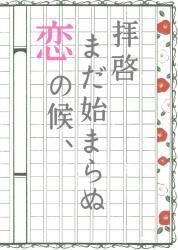 拝啓
まだ始まらぬ
恋の候、